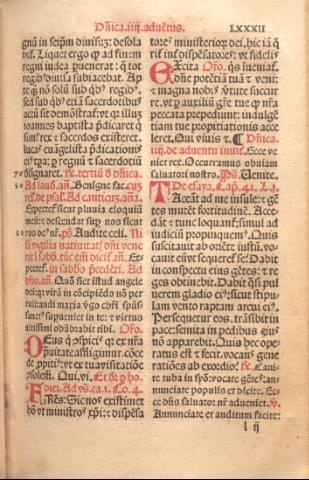 Dñica.iiij.aduẽtus.
LXXXII
gnũ in seipm diuisũ: desola
vit. Liquet ergo ꝙ ad finẽ m
regni iudea puenerat: q̃ tot
regib⁹ diuisa subiacebat. Ap
te qz nõ solũ sub qb⁹ regib⁹,
sed sub qb⁹ etiã sacerdotibus
actũ sit demõstrat̃: vt ꝙ illuz
ioannes baptista p̃dicaret q̃
simĩ rex ⁊ sacerdos existeret.
lucas euãgelista p̃dicatiõis
ei⁹ tpa: p regnũ ⁊ sacerdotiũ
designaret. R̃. tertiũ d dñica.
Ad laud. añ. Benigne fac. cuz
reliq̃s de psal. Ad cantica añ.
Expectet sicut pluuia eloquiũ
meũ: ⁊ descendãt sup nos sicut
ros de⁹ nr̃. ps̃. Audite celi. Ni
si vigilia natiuitat̃ dñi vene
rit ĩ sabbo. tũc em̃ dicit̃ añ. Ex
pectet̃. in sabbo p̃cedẽti. Ad
bñs. añ. Quõ fiet istud angele
dei: qr virũ in cõcipiẽdo nõ per
tuli: audi maria vgo chri spũs
sanct⁹ superueniet in te: ⁊ virtus
altissimi obũbrabit tibi. Oro.
Deus q̃ cõspicis qr ex nr̃a
prauitate affligimur. cõce
de ppiti⁹: vt ex tua visitatiõe
cõsolem̃. Qui. vi. Et dr̃ p ho.
diei. Ad vs̃. ca. 1. Co. 4.
FRẽs: Sic nos existimet
hõ vt ministros xp̃i: ⁊ dispẽsa
tores ministerioꝝ dei. hic iã q̃
rit̃ int̃ dispẽsatores: vt fidelis
Excita Oro. q̃s inueniat̃.
dñe potẽtiã tuã ⁊ veni:
⁊ magna nobis v̓tute succur
re. vt p auxiliũ gr̃e tue ꝙ nr̃a
peccata prepediunt: indulgẽ
tiam tue propitiationis accele
ret. Qui viuis ⁊. ¶ Dñica.
iiij. de aduentu inuit̃. Ecce ve
niet rex. Occurramus obuiam
saluatori nostro. ps̃. Uenite.
De esaya. Cap. 41. L. 1.
TAceãt ad me insule: ⁊ gẽ
tes mutẽt fortitudinẽ. Acce
dãt ⁊ tunc loquant̃: simul ad
iudiciũ propinquem⁹. Quis
suscitauit ab oriẽte iustũ. vo
cauit eũ vt sequeret̃ se? Dabit
in conspectu eius gẽtes: ⁊ re
ges obtinebit. Dabit q̃si pul
uerem gladio ei⁹: sicut stipu
lam vento raptam arcui ei⁹.
Persequetur eos. trãsibit in
pace: semita in pedibus ei⁹
nõ apparebit. Quis hec ope
ratus est ⁊ fecit. vocans gene
ratiões ab exordio? R̃. Cani
te tuba in syõ: vocate gẽtes: an
nunciate populis et dicite. Ec
ce de⁹ saluator nr̃ adueniet. ℣.
Annunciate et auditum facite:
l ij